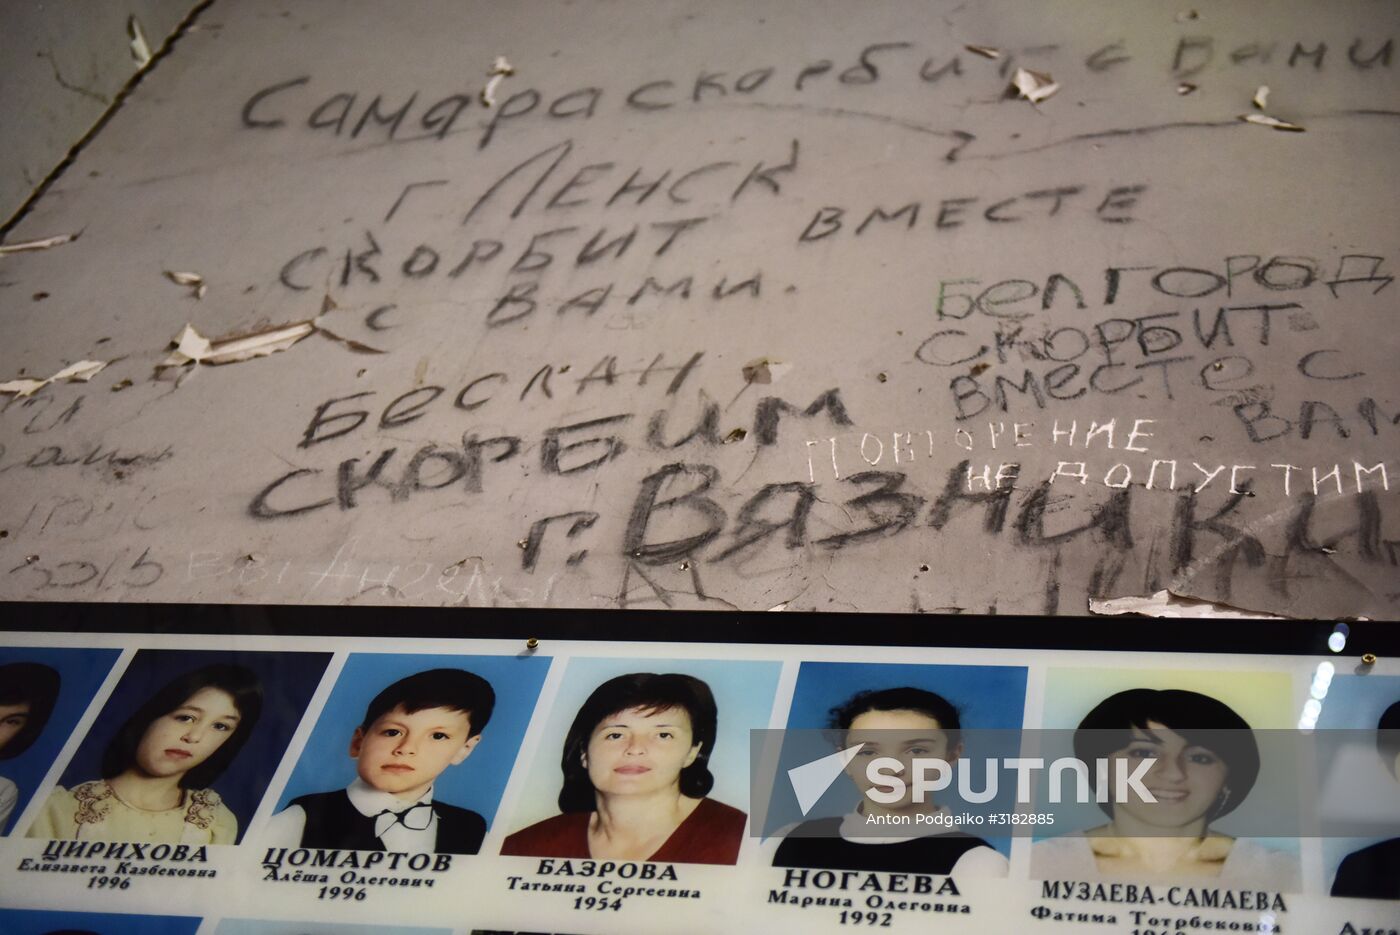 Самара скорбит с вами
г. Ленск
скорбит вместе
с вами.
Белгород
скорбит
вместе с
вам
Беслан
скорбим
г. Вязники
Повторение
не допустим
Вы Ангелы
ЦИРИХОВА
Елизавета Казбековна
1996
ЦОМАРТОВ
Алёша Олегович
1996
БАЗРОВА
Татьяна Сергеевна
1954
НОГАЕВА
Марина Олеговна
1992
МУЗАЕВА-САМАЕВА
Фатима Тотрбековна
SPUTNIK
Anton Podgaiko #3182885